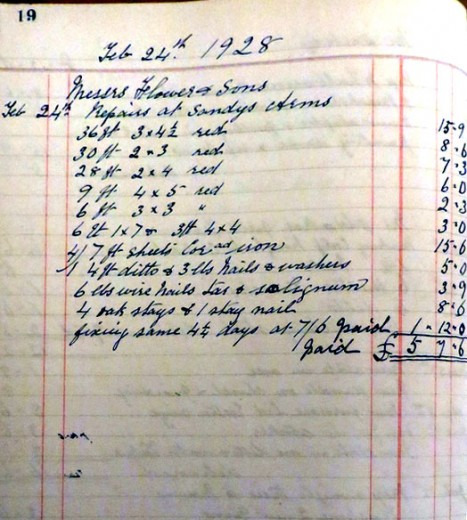 19
Feb 24th. 1928
Messrs Flower & Sons
Feb 24th Repairs at Sandys Arms
36 ft 3 x 4½ red 15·9
30 ft 2 x 3 red 8·6
28 ft 2 x 4 red 7·3
9 ft 4 x 5 red 6·0
6 ft 3 x 3 " 2·3
6 ft 1 x 7 & 3 ft 4 x 4 3·0
4/7 ft sheets Cor ad iron 15·6
1 4 ft ditto & 3 lbs Nails & washers 5·0
6 lbs wire Nails tar & solignum 3·9
4 oak stays & 1 stay nail 8·6
fixing same 4¼ days at 7/6 paid 1·12·0
paid £ 5 7·6